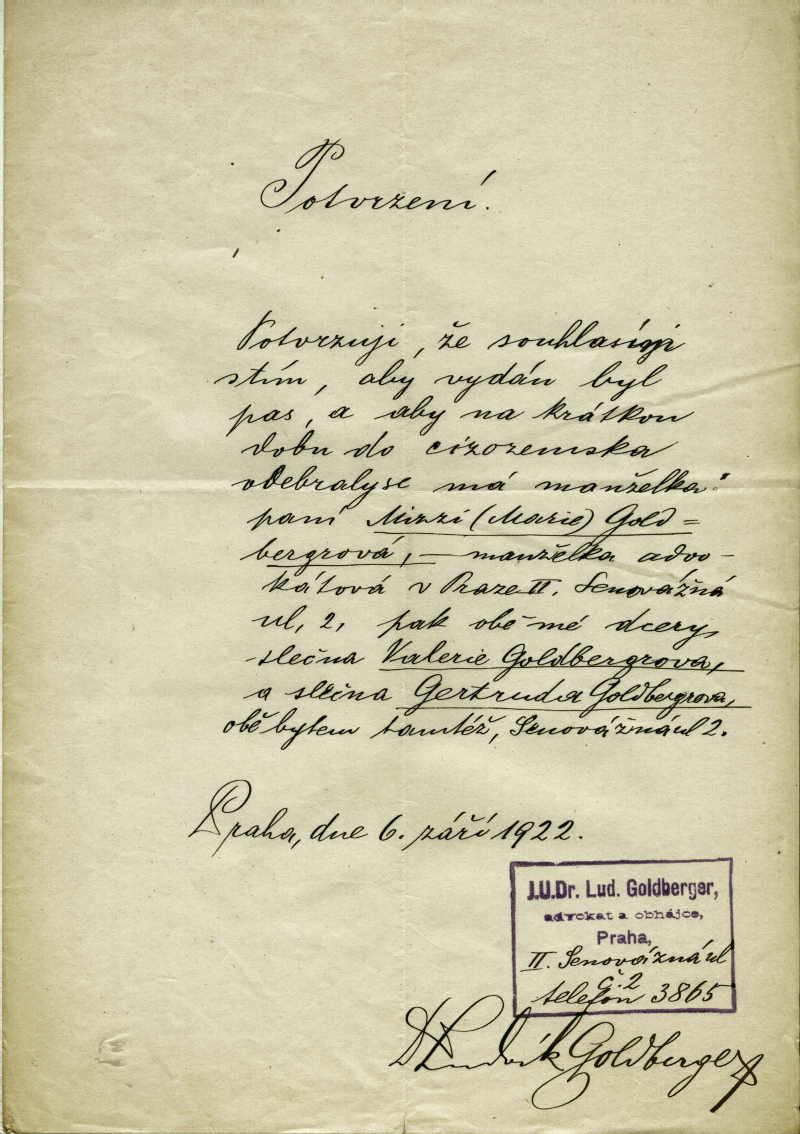 Potvrzení.
Potvrzuji, že souhlasím
stím, aby vydán byl
pas, a aby na krátkou
dobu do cizozemska
odebralyse má manželka:
paní Mizzi (Marie) Gold=
bergrová, — manželka advo-
kátová v Praze II. Senovážná
ul, 2, pak obě mé dcery,
slečna Valerie Goldbergrova,
a slečna Gertruda Goldbergrova,
obě bytem tamtéž, Senovážná ul 2.
Praha, dne 6. září 1922.
J.U.Dr. Lud. Goldberger,
advokat a obhájce,
Praha,
II. Senovážná ul
č. 2
telefon 3865
Dr Ludvík Goldberger